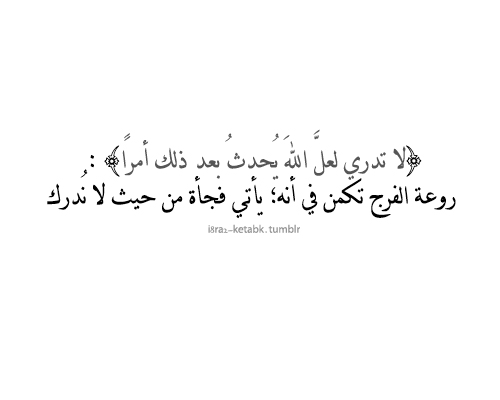 ﴿لا تدري لعلَّ اللهَ يُحدثُ بعد ذلك أمرًا﴾ :
روعة الفرج تكمن في أنه؛ يأتي فجأة من حيث لا نُدرك
i8ra2-ketabk.tumblr